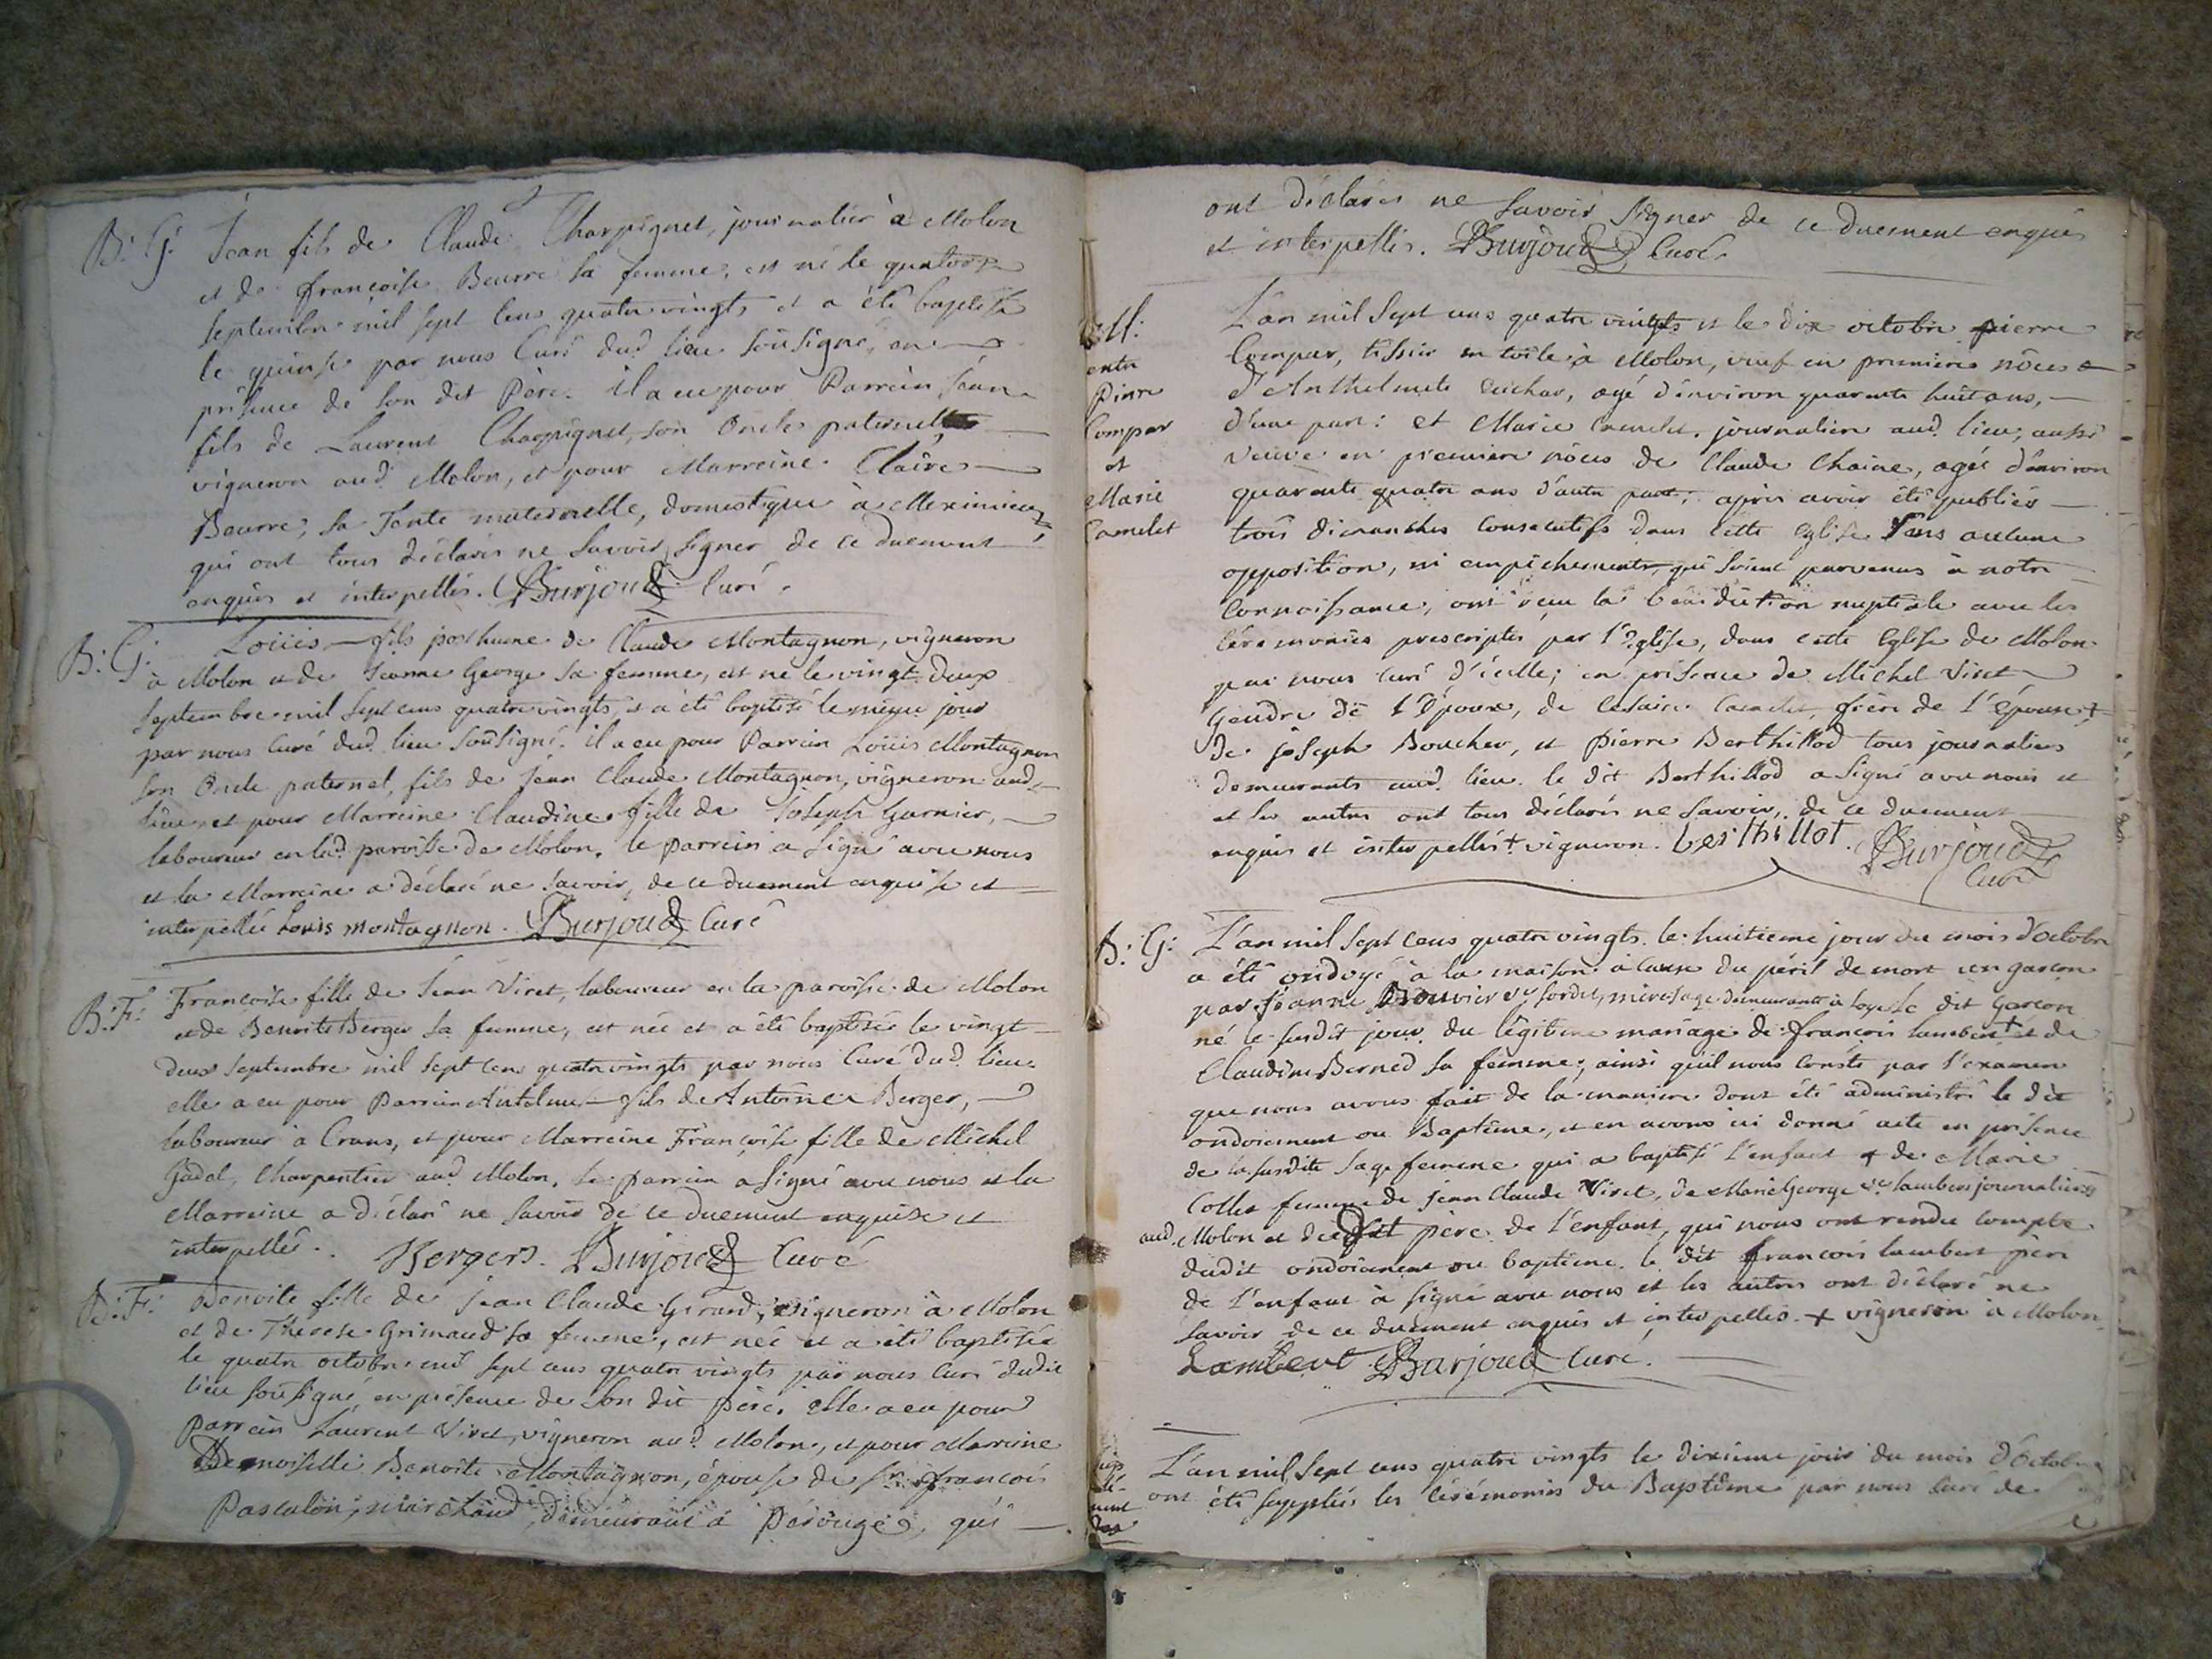 B: G: Jean fils de Claude Charpignet, journalier à Molon
et de françoise Beurre sa femme, est né le quatorze
septembre mil sept cens quatre vingts et a été baptisé
le quinse par nous Curé dud. lieu soûsigné, en
présence de son dit Père. il a eu pour Parrein Jean
fils de Laurent Charpignet, son Oncle paternel
vigneron aud. Molon, et pour Marreine Claire
Beurre, sa Tente maternelle, domestique à Meximieux,
qui ont tous déclarés ne savoir signer de ce duement
enquis et interpellés. Burjoud Curé.
B: G: Loüis fils posthume de Claude Montagnon, vigneron
à Molon et de Jeanne George sa femme, est né le vingt deux
septembre mil sept cens quatre vingts, et a été baptisé le même jour
par nous Curé dud. lieu soûsigné. il a eu pour Parrein Loüis Montagnon
son Oncle paternel, fils de Jean Claude Montagnon, vigneron aud.
lieu, et pour Marreine Claudine fille de Joseph Garnier,
laboureur en lad. paroisse de Molon. le parrein a signé avec nous
et la Marreine a déclaré ne savoir, de ce duement enquise et
interpellée Louis montagnon. Burjoud Curé
B: F: Françoise fille de Jean Viret, laboureur en la paroisse de Molon
et de Benoite Berger sa femme, est née et a été baptisée le vingt
deux septembre mil sept cens quatre vingts par nous Curé dud. lieu.
elle a eu pour Parrein Antelme fils de Antoine Berger,
laboureur à Crans, et pour Marreine Françoise fille de Michel
Jadel, Charpentier aud. Molon. le parrein a signé avec nous et la
Marreine a déclaré ne savoir de ce duement enquise et
interpellée. Bergers. Burjoud Curé
B: F: Benoite fille de Jean Claude Girand, vigneron à Molon
et de Therese Grimaud sa femme, est née et a été baptisée
le quatre octobre mil sept cens quatre vingts par nous Curé dudit
lieu soûsigné, en présence de son dit père. elle a eu pour
parrein Laurent Viret, vigneron aud. Molon, et pour Marreine
Demoiselle Benoite Montagnon, épouse de sr. françois
Pascalon, marchand, demeurant à Pérouge, qui
ont déclarés ne savoir signer de ce duement enquis
et interpellés. Burjoud Curé.
M:
entre
Pierre
Compar
et
Marie
Camelet
L'an mil sept cens quatre vingts et le dix octobre pierre
Compar, tissier en toile à Molon, veuf en premieres nôces
d'Anthelmete Cuchar, agé d'environ quarante huit ans,
d'une part: et Marie Camelet. journaliere aud. lieu, aussi
veuve en premiere nôces de Claude Chaine, agée d'environ
quarante quatre ans d'autre part; après avoir été publiés
trois dimanches consecutifs dans cette Eglise sans aucune
opposition, ni empêchements, qui soient parvenus à notre
connoissance, ont reçu la bénédiction nuptiale avec les
cérémonies prescriptes par l'Eglise, dans cette Eglise de Molon
par nous Curé d'icelle; en présence de Michel Viret
Gendre de l'Époux, de Camelet, frère de l'épouse +
de joseph Boucher, et Pierre Berthillod tous journaliers
demeurants aud. lieu. le dit Berthillod a signé avec nous et
et les autres ont tous déclarés ne savoir, de ce duement
enquis et interpellés + vigneron. berthillot. Burjoud
Curé
B: G: L'an mil sept cens quatre vingts. le huitieme jour du mois d'octobre
a été ondoyé à la maison à cause du péril de mort un garçon
par Jeanne Bouvier demeurante à Loye. le dit Garçon
né le susdit jour du légitime mariage de françois Lambert + et de
Claudine Berned sa femme, ainsi qu'il nous conste par l'examen
que nous avons fait de la maniere dont été administré le dit
ondoiement ou Baptême, et en avons ici donné acte en présence
de la susdite sage femme qui a baptisé l'enfant & de Marie
Collet femme de jean Claude Viret, de Marie George ve Lambert journalieres
aud. Molon et dudit père de l'enfant, qui nous ont rendu compte
dudit ondoiement ou baptême. le dit françois Lambert père
de l'enfant a signé avec nous et les autres ont déclaré ne
savoir de ce duement enquis et interpellés. + vigneron à Molon.
Lambert Burjoud Curé.
L'an mil sept cens quatre vingts le dixieme jour du mois d'Octobre
ont été suppléées les cérémonies du Baptême par nous Curé de